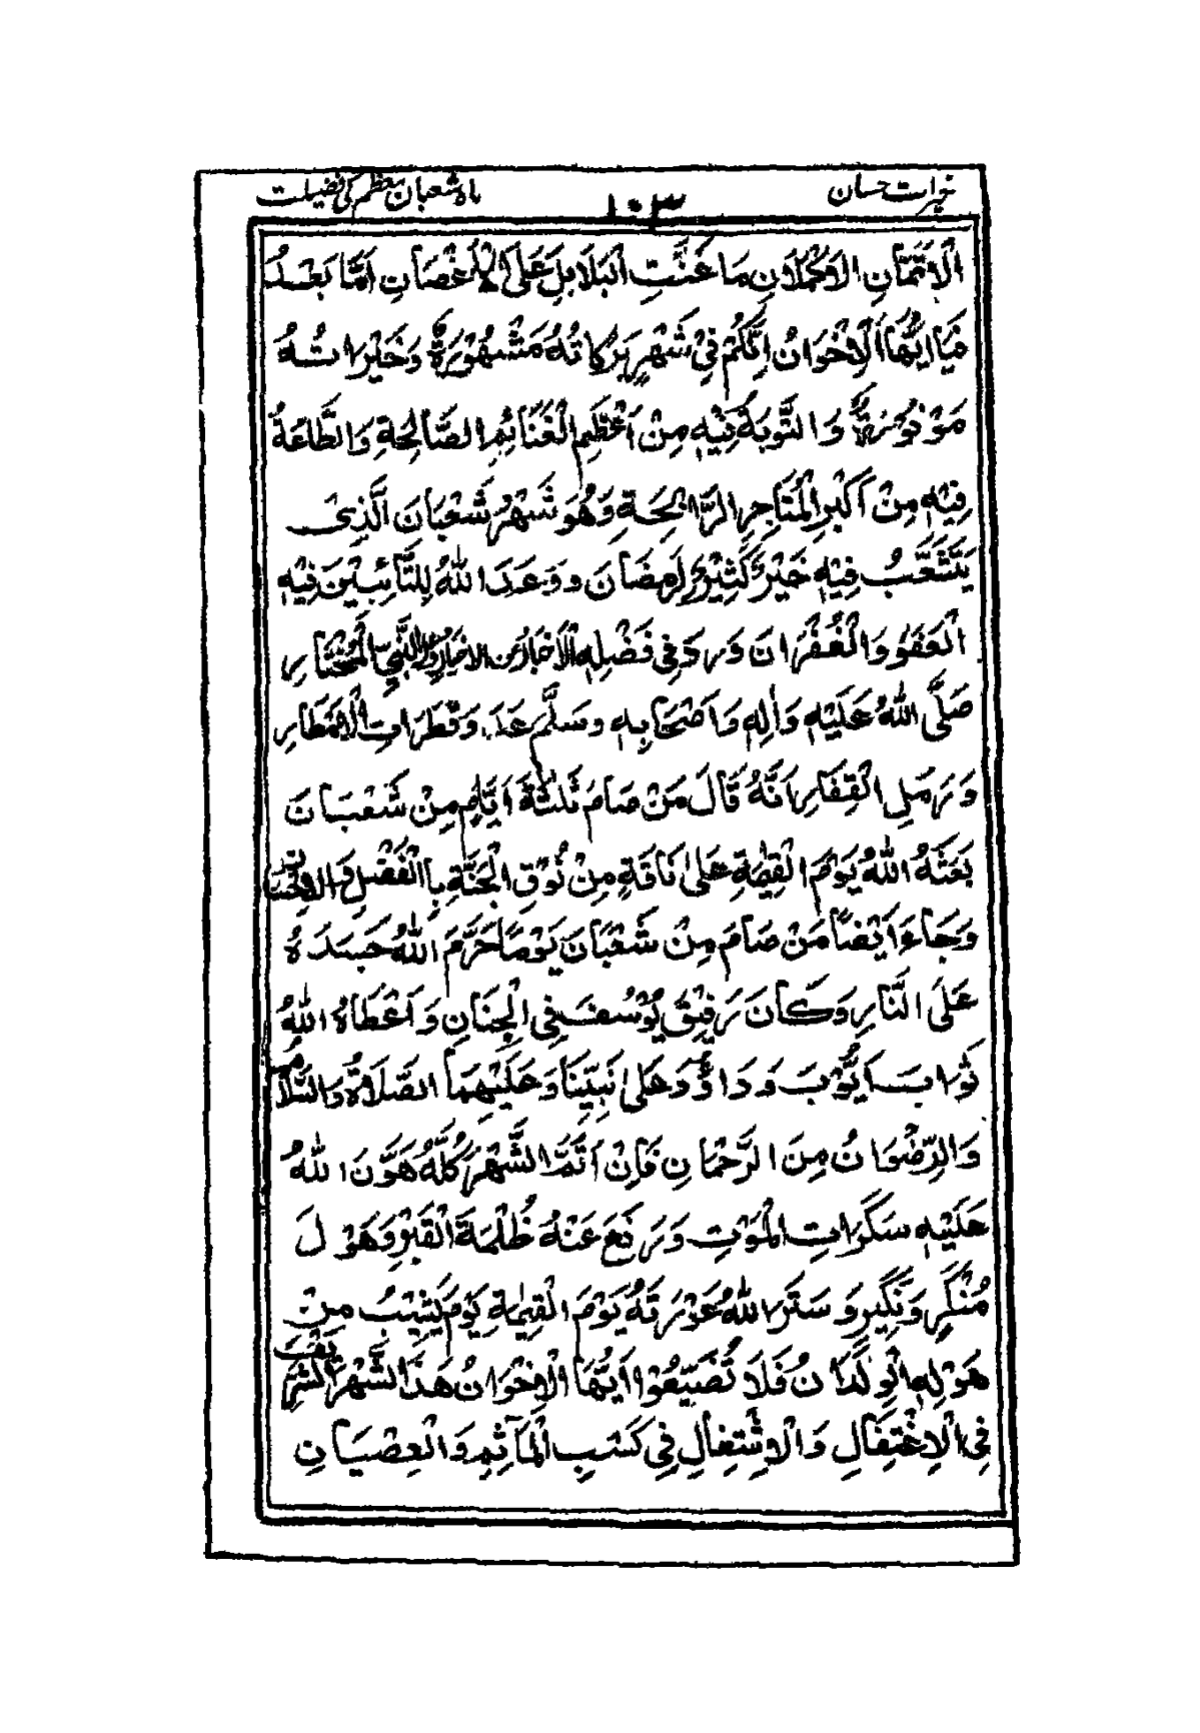 خیرات حسان ۱۰۳ ماہ شعبان معظم کی فضیلت
الْاَتَمَّانِ الْاَكْمَلَانِ مَا غَنَّتِ الْبَلَابِلُ عَلَى الْاَغْصَانِ اَمَّا بَعْدُ
فَيَا اَيُّهَا الْاِخْوَانُ اِنَّكُمْ فِيْ شَهْرٍ بَرَكَاتُهُ مَشْهُوْرَةٌ وَخَيْرَاتُهُ
مَوْفُوْرَةٌ وَالتَّوْبَةُ فِيْهِ مِنْ اَعْظَمِ الْغَنَائِمِ الصَّالِحَةِ وَالطَّاعَةُ
فِيْهِ مِنْ اَكْبَرِ الْمَتَاجِرِ الرَّابِحَةِ وَهُوَ شَهْرُ شَعْبَانَ الَّذِيْ
يَتَشَعَّبُ فِيْهِ خَيْرٌ كَثِيْرٌ لِرَمَضَانَ وَوَعَدَ اللهُ لِلتَّائِبِيْنَ فِيْهِ
الْعَفْوَ وَالْغُفْرَانَ وَرَدَ فِيْ فَضْلِهِ الْاَخْبَارُ عن الاخيار عَنِ النَّبِيِّ الْمُخْتَارِ
صَلَّى اللهُ عَلَيْهِ وَاٰلِهِ وَاَصْحَابِهِ وَسَلَّمَ عَدَدَ قَطَرَاتِ الْاَمْطَارِ
وَرَمْلِ الْقِفَارِ اَنَّهُ قَالَ مَنْ صَامَ ثَلٰثَةَ اَيَّامٍ مِنْ شَعْبَانَ
بَعَثَهُ اللهُ يَوْمَ الْقِيٰمَةِ عَلٰى نَاقَةٍ مِنْ نُوْقِ الْجَنَّةِ بِالْفَضْلِ وَالاِمْتِنَانِ
وَجَاءَ اَيْضًا مَنْ صَامَ مِنْ شَعْبَانَ يَوْمًا حَرَّمَ اللهُ جَسَدَهُ
عَلَى النَّارِ وَكَانَ رَفِيْقَ يُوْسُفَ فِي الْجِنَانِ وَاَعْطَاهُ اللهُ
ثَوَابَ اَيُّوْبَ وَدَاوُدَ عَلٰى نَبِيِّنَا وَعَلَيْهِمَا الصَّلَاةُ وَالسَّلَامُ
وَالرِّضْوَانُ مِنَ الرَّحْمَانِ فَاِنْ اَتَمَّ الشَّهْرَ كُلَّهُ هَوَّنَ اللهُ
عَلَيْهِ سَكَرَاتِ الْمَوْتِ وَرَفَعَ عَنْهُ ظُلْمَةَ الْقَبْرِ وَهَوْلَ
مُنْكَرٍ وَنَكِيْرٍ وَسَتَرَ اللهُ عَوْرَتَهُ يَوْمَ الْقِيٰمَةِ يَوْمَ يَشِيْبُ مِنْ
هَوْلِهِ الْوِلْدَانُ فَلَا تُضَيِّعُوْا اَيُّهَا الْاِخْوَانُ هَذَا الشَّهْرَ الشَّرِيْفَ
فِي الْاِغْتِفَالِ وَالْاِشْتِغَالِ فِيْ كَسْبِ الْمَآثِمِ وَالْعِصْيَانِ